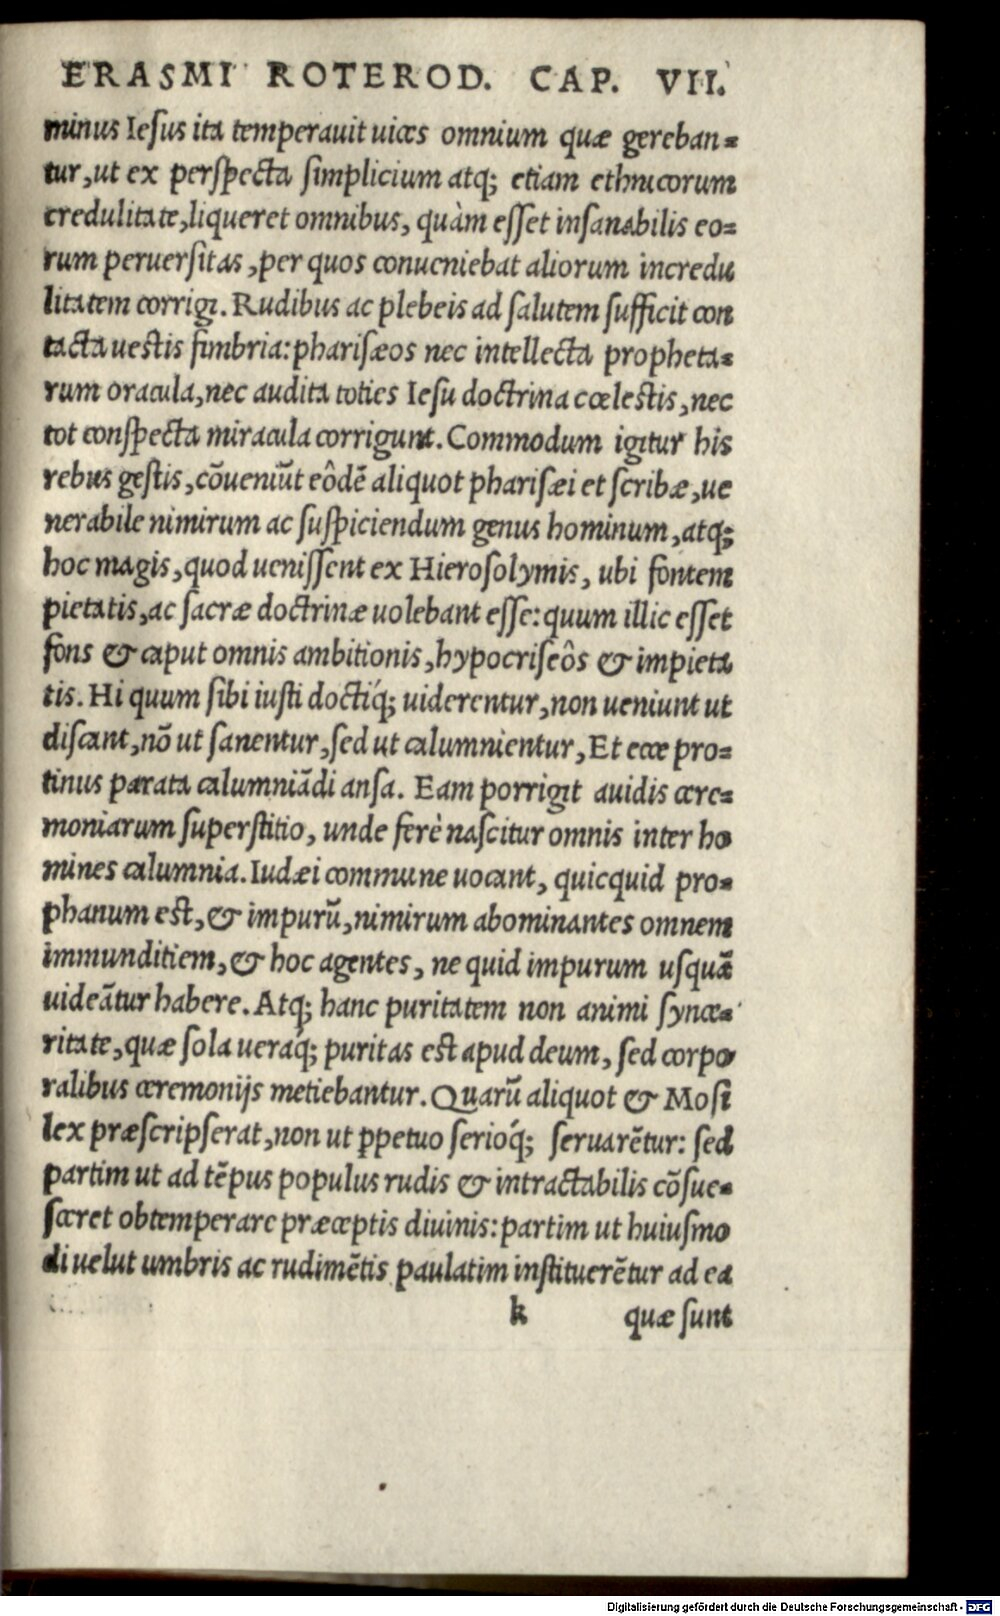 ERASMI ROTEROD. CAP. VII.
minus Iesus ita temperauit uices omnium quæ gereban=
tur, ut ex perspecta simplicium atq; etiam ethnicorum
credulitate, liqueret omnibus, quàm esset insanabilis eo=
rum peruersitas, per quos conueniebat aliorum incredu
litatem corrigi. Rudibus ac plebeis ad salutem sufficit con
tacta uestis fimbria: pharisæos nec intellecta propheta=
rum oracula, nec audita toties Iesu doctrina cœlestis, nec
tot conspecta miracula corrigunt. Commodum igitur his
rebus gestis, cōueniūt eôdē aliquot pharisæi et scribæ, ue
nerabile nimirum ac suspiciendum genus hominum, atq;
hoc magis, quod uenissent ex Hierosolymis, ubi fontem
pietatis, ac sacræ doctrinæ uolebant esse: quum illic esset
fons & caput omnis ambitionis, hypocriseôs & impieta
tis. Hi quum sibi iusti doctiq́; uiderentur, non ueniunt ut
discant, nō ut sanentur, sed ut calumnientur, Et ecce pro=
tinus parata calumniādi ansa. Eam porrigit auidis cere=
moniarum superstitio, unde ferè nascitur omnis inter ho
mines calumnia. Iudæi commune uocant, quicquid pro=
phanum est, & impurū, nimirum abominantes omnem
immunditiem, & hoc agentes, ne quid impurum usquā
uideātur habere. Atq; hanc puritatem non animi synce=
ritate, quæ sola ueraq́; puritas est apud deum, sed corpo
ralibus ceremonijs metiebantur. Quarū aliquot & Mosi
lex præscripserat, non ut ꝑpetuo serioq́; seruarētur: sed
partim ut ad tēpus populus rudis & intractabilis cōsue=
sceret obtemperare præceptis diuinis: partim ut huiusmo
di uelut umbris ac rudimētis paulatim instituerētur ad ea
k quæ sunt
Digitalisierung gefördert durch die Deutsche Forschungsgemeinschaft - DFG